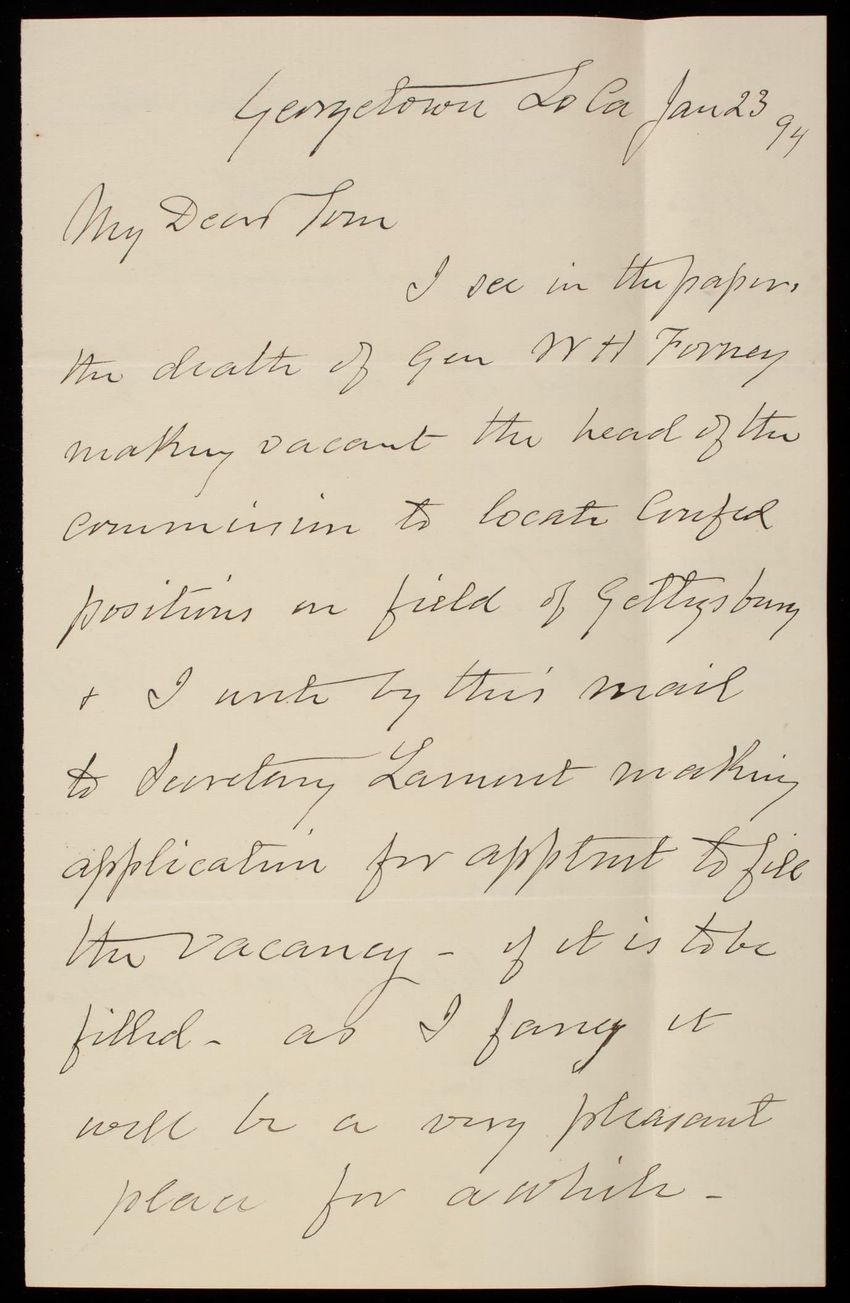 Georgetown So Ca Jan 23
94
My Dear Tom
I see in the papers
the death of Gen W H Forney
making vacant the head of the
commission to locate Confed
positions on field of Gettysburg
& I write by this mail
to Secretary Lamont making
application for apptmt to fill
the vacancy - if it is to be
filled - as I fancy it
will be a very pleasant
place for a while -